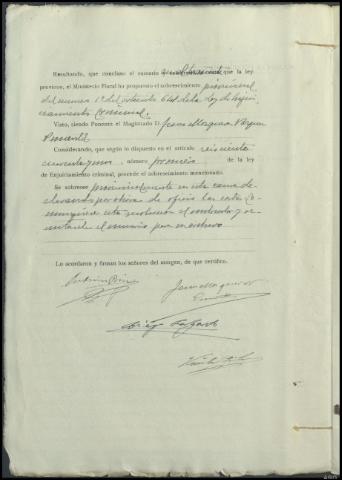 Resultando, que concluso el sumario y que la ley
previene, el Ministerio Fiscal ha propuesto el sobreseimiento provisional
del número 1º del artículo 641 de la Ley de Enjui
ciamiento Criminal.
Visto, siendo Ponente el Magistrado D. Jesus Marquina Vazquez
Pimentel
Considerando, que según lo dispuesto en el artículo seiscientos
cuarenta y uno número primero de la ley
de Enjuiciamiento criminal, procede el sobreseimiento mencionado.
Se sobresee provisionalmente en esta causa de
clarando por ahora de oficio las costas co
muníquese esta resolución al y de
el sumario para su archivo
Lo acordaron y firman los señores del margen, de que certifico.